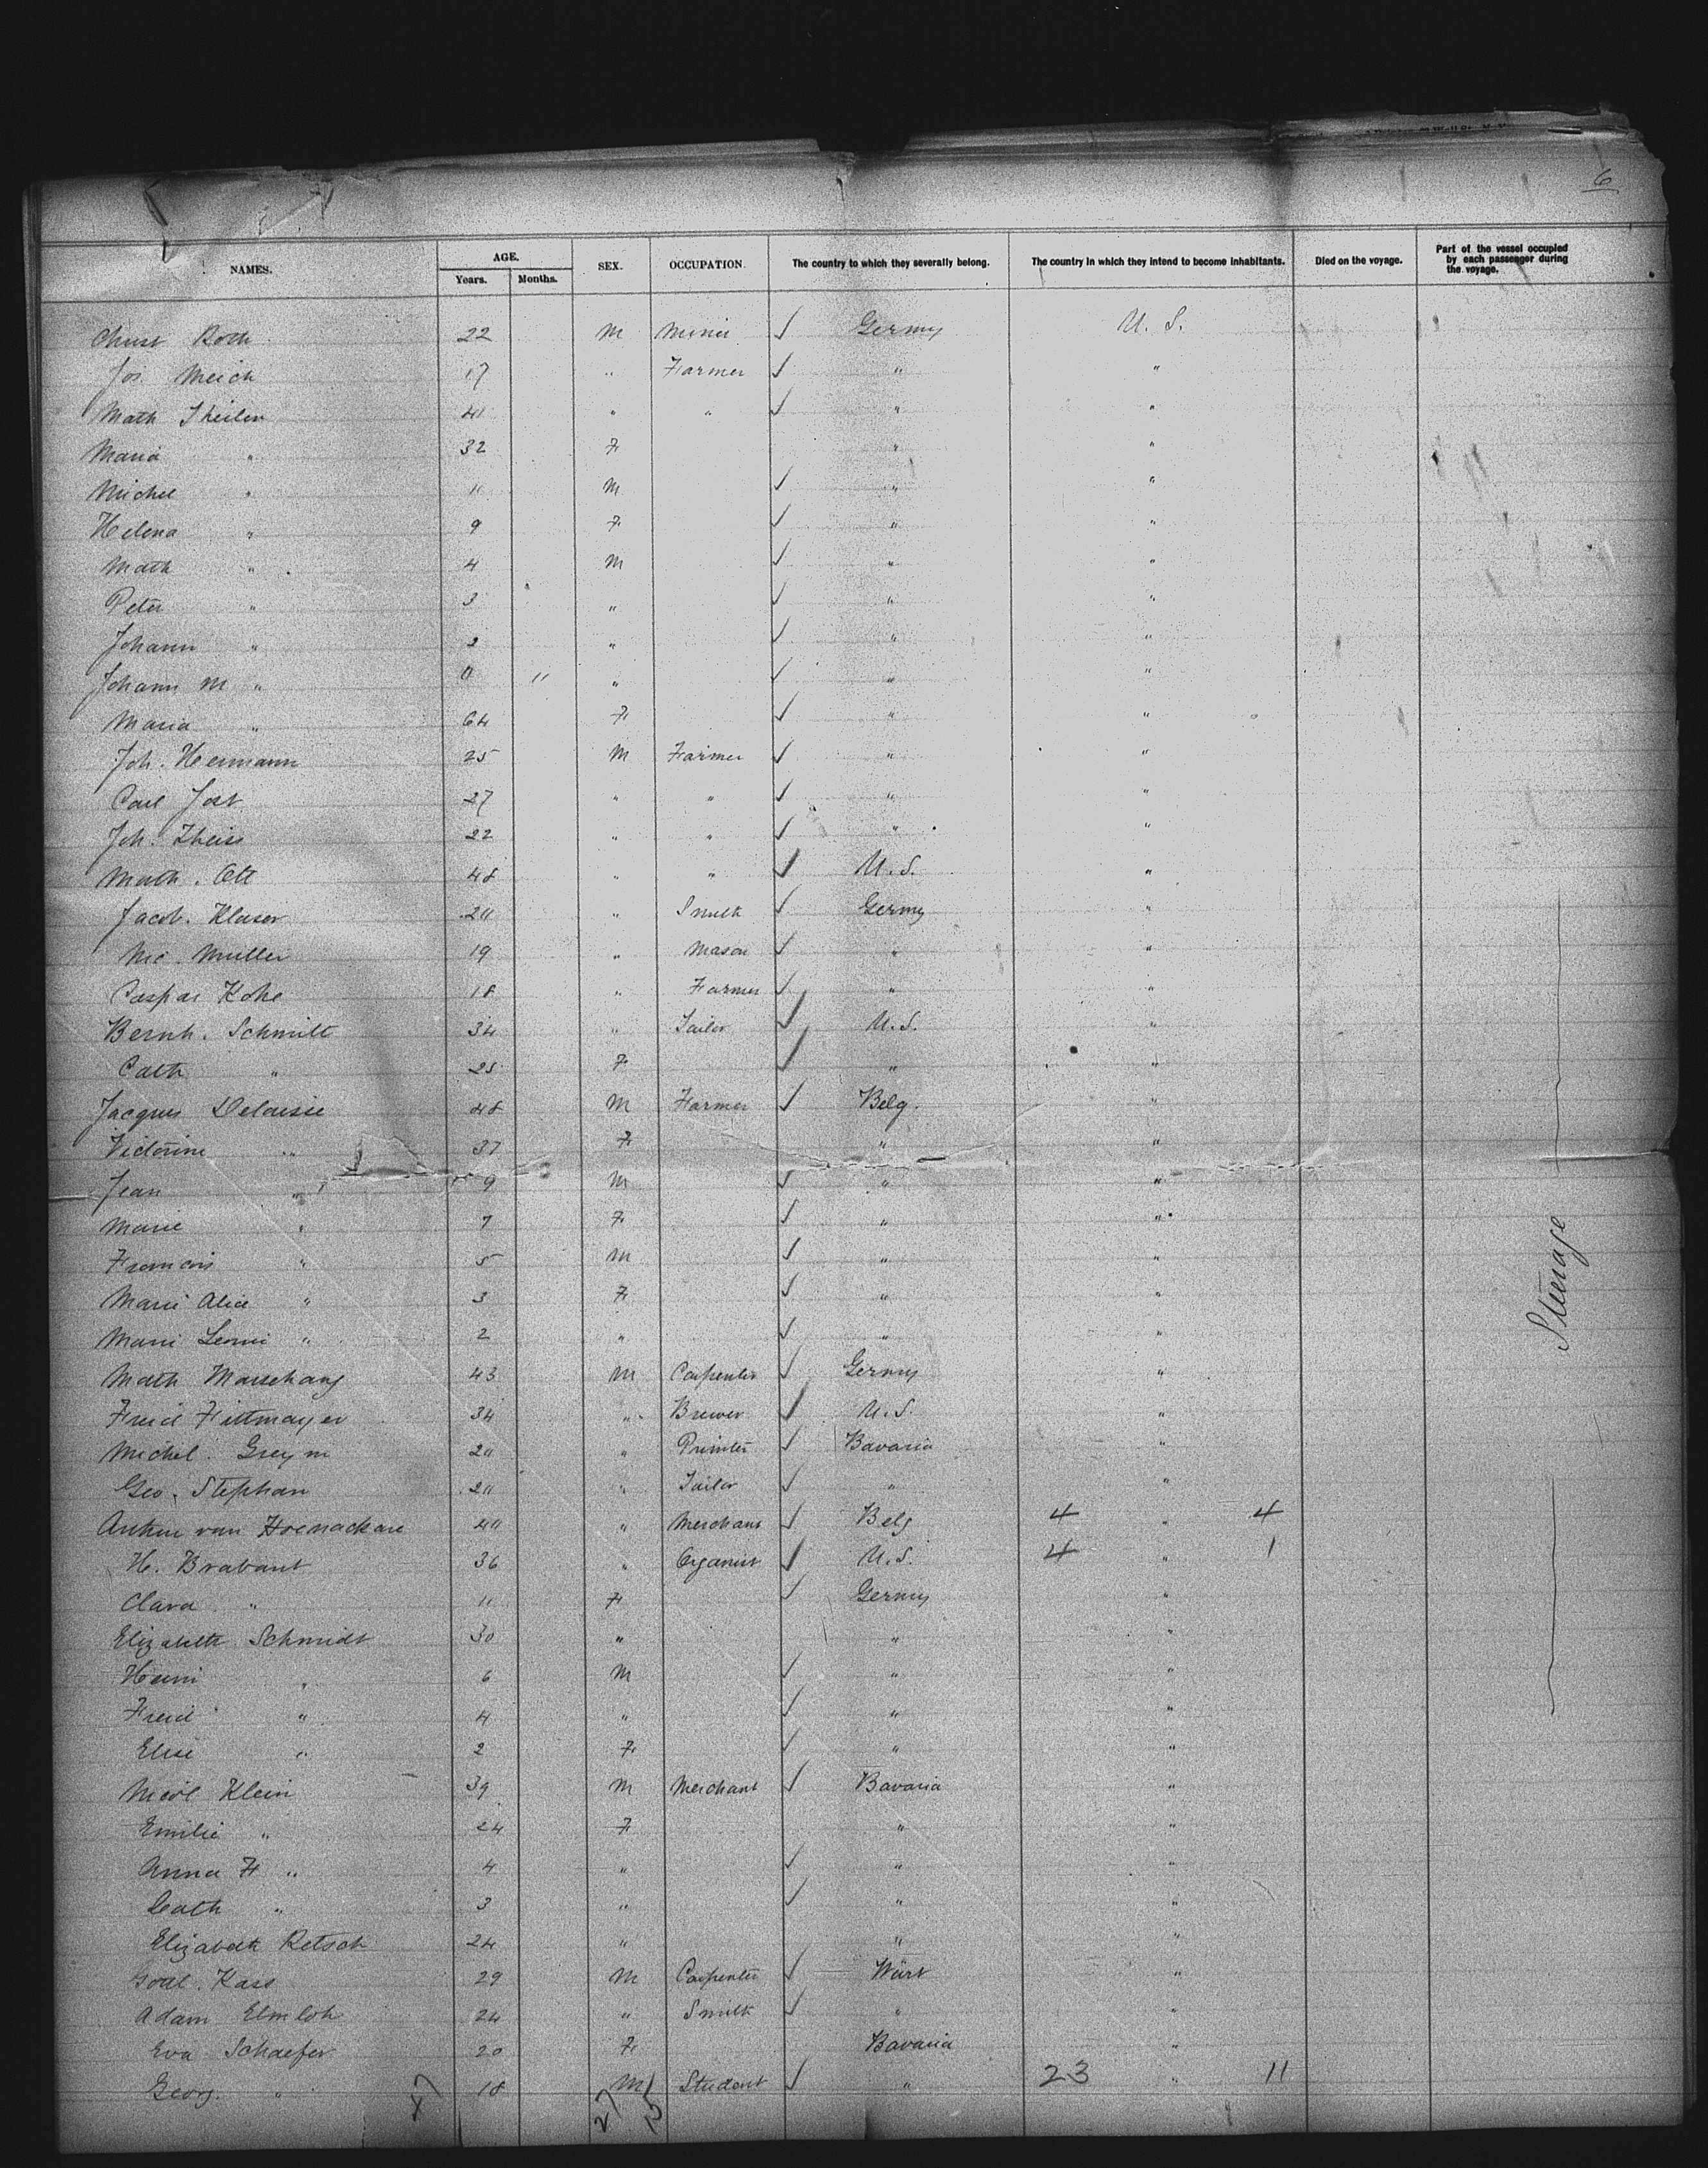 6
NAMES. AGE. Years. Months. SEX. OCCUPATION. The country to which they severally belong. The country in which they intend to become inhabitants. Died on the voyage. Part of the vessel occupied by each passenger during the voyage.
Christ Roth 22 M Miner ✓ Germy U. S.
Jos. Meich 17 " Farmer ✓ " "
Math Theilen " " ✓ " "
Maria " 32 F " "
Michel " 11 M ✓ " "
Helena " 9 F ✓ " "
Math " 4 M ✓ " "
Peter " 3 " ✓ " "
Johann " 2 " ✓ " "
Johann M " 0 11 " ✓ " "
Maria " 64 F ✓ " "
Joh. Hermann 25 M Farmer ✓ " "
Carl Jost 27 " " ✓ " "
Joh. Theiss 22 " " ✓ " "
Math. Ott 48 " " ✓ U. S. "
Jacob. Klaser " Smith ✓ Germy "
Nic. Muller 19 " Mason ✓ " "
Caspar Kohe 18 " Farmer ✓ " "
Bernh. Schmitt 34 " Tailor ✓ U. S. "
Cath " 25 F ✓ " "
Jacques Delaisie 48 M Farmer ✓ Belg. "
Victorine " 37 F " "
Jean " 9 M ✓ " "
Marie " 7 F ✓ " "
Francois " 5 M ✓ " "
Marie Alice " 3 F ✓ " "
Marie Leonie " 2 " ✓ " "
Math Marschang 43 M Carpenter ✓ Germy "
Fried Fittmayer 34 " Brewer ✓ U. S. "
Michel. Greym " Printer ✓ Bavaria "
Geo. Stephan " Tailor ✓ " "
van " Merchant ✓ Belg 4 " 4
H. Brabant 36 " Organist ✓ U. S. 4 " 1
Clara " 11 F ✓ Germy "
Elizabeth Schmidt 30 " " "
Henri " 6 M ✓ " "
Fried " 4 " ✓ " "
Elise " 2 F ✓ " "
Nicol Klein 39 M Merchant ✓ Bavaria "
Emilie " 24 F " "
Anna F " 4 " ✓ " "
Cath " 3 " ✓ " "
Elizabeth Retsch 24 " " "
Kass 29 M Carpenter ✓ Würt "
Adam Elmloh 24 " Smith ✓ " "
Eva Schaefer 20 F Bavaria "
Georg. " 18 M Student ✓ " 23 " 11
47 27
Steerage